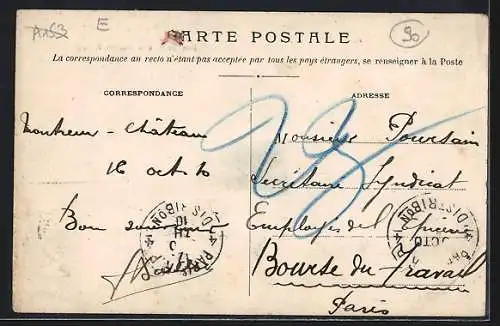 A153
E
90
CARTE POSTALE
La correspondance au recto n'étant pas acceptée par tous les pays étrangers, se renseigner à la Poste
CORRESPONDANCE
ADRESSE
Montreux - Château
16 oct 10
Bon souvenir
Monsieur Poursain
Secrétaire Syndicat
Employés de l'Epicerie
Bourse du Travail
Paris
25
PARIS
DISTRIBON
DISTRIBON